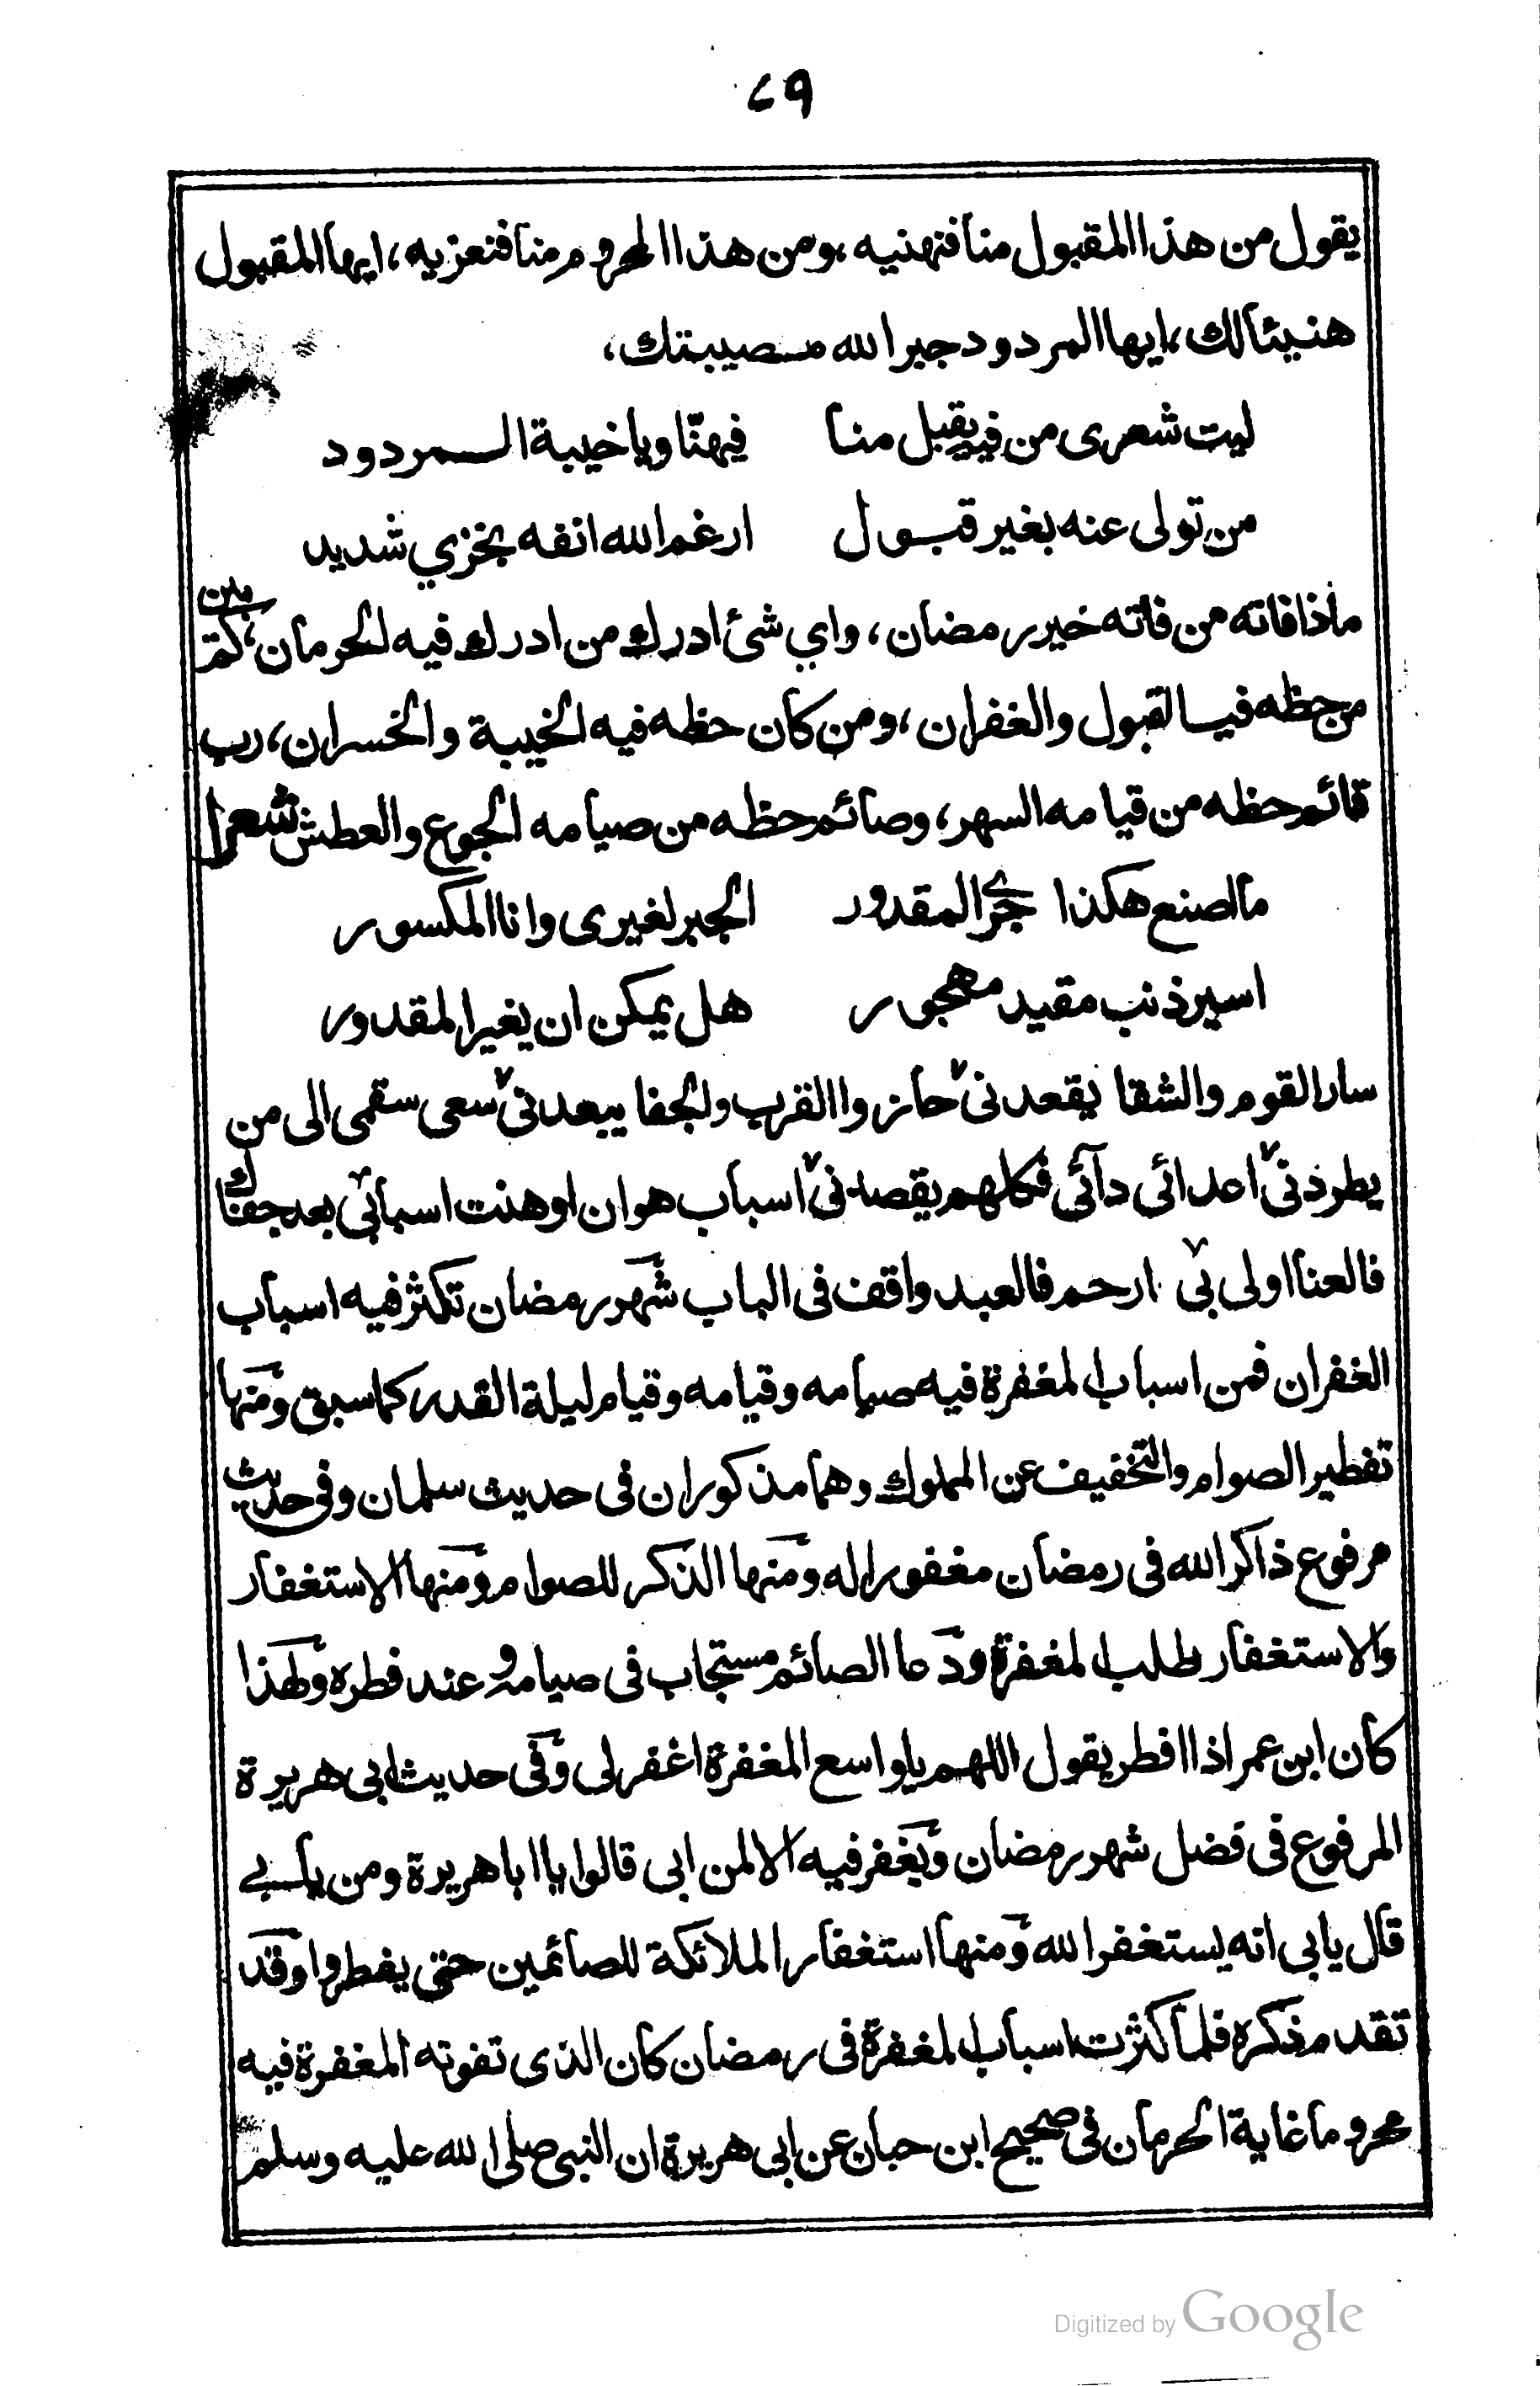 ٤٩
يقول من هذا المقبول منا فنهنيه ، ومن هذا المحروم منا فنعزيه ، ايها المقبول
هنيئا لك ، ايها المردود جبر الله مصيبتك ،
ليت شعرى من فيه يقبل منا فيهنّا ويا خيبة المردود
من تولى عنه بغير قبول ارغم الله انفه بخزي شديد
ماذا فاته من فاته خير رمضان ، واي شئ ادرك من ادرك فيه الحرمان ، كم بين
من حظه فيه القبول والغفران ، ومن كان حظه فيه الخيبة والخسران ، رب
قائم حظه من قيامه السهر ، وصائم حظه من صيامه الجوع والعطش شعرا
ما اصنع هكذا جرى المقدور الجبر لغيرى وانا المكسور
اسير ذنب مقيد مهجور هل يمكن ان يغير المقدور
سار القوم والشقا يقعدنى حازوا القرب والجفا يبعدنى سعى سقمى الى من
يطردنى اعدائى دآئى فكلهم يقصدنى اسباب هوان اوهنت اسبابى بعد جفاك
فالعنا اولى بى ارحم فالعبد واقف فى الباب شهر رمضان تكثر فيه اسباب
الغفران فمن اسباب المغفرة فيه صيامه وقيامه وقيام ليلة القدر كما سبق ومنها
تفطير الصوام والتخفيف عن المملوك وهما مذكوران فى حديث سلمان وفى حديث
مرفوع ذاكر الله فى رمضان مغفورا له ومنها الذكر للصوام ومنها الاستغفار
والاستغفار طلب المغفرة ودعا الصائم مستجاب فى صيامه وعند فطره ولهذا
كان ابن عمر اذا افطر يقول اللهم يا واسع المغفرة اغفر لى وفى حديث ابى هريرة
المرفوع فى فضل شهر رمضان ويغفر فيه الا لمن ابى قالوا يا ابا هريرة ومن يابى
قال يابى انه يستغفر الله ومنها استغفار الملائكة للصائمين حتى يفطروا وقد
تقدم ذكره فلما كثرت اسباب المغفرة فى رمضان كان الذى تفوته المغفرة فيه
محروما غاية الحرمان فى صحيح ابن حبان عن ابى هريرة ان النبى صلى الله عليه وسلم
Digitized by Google